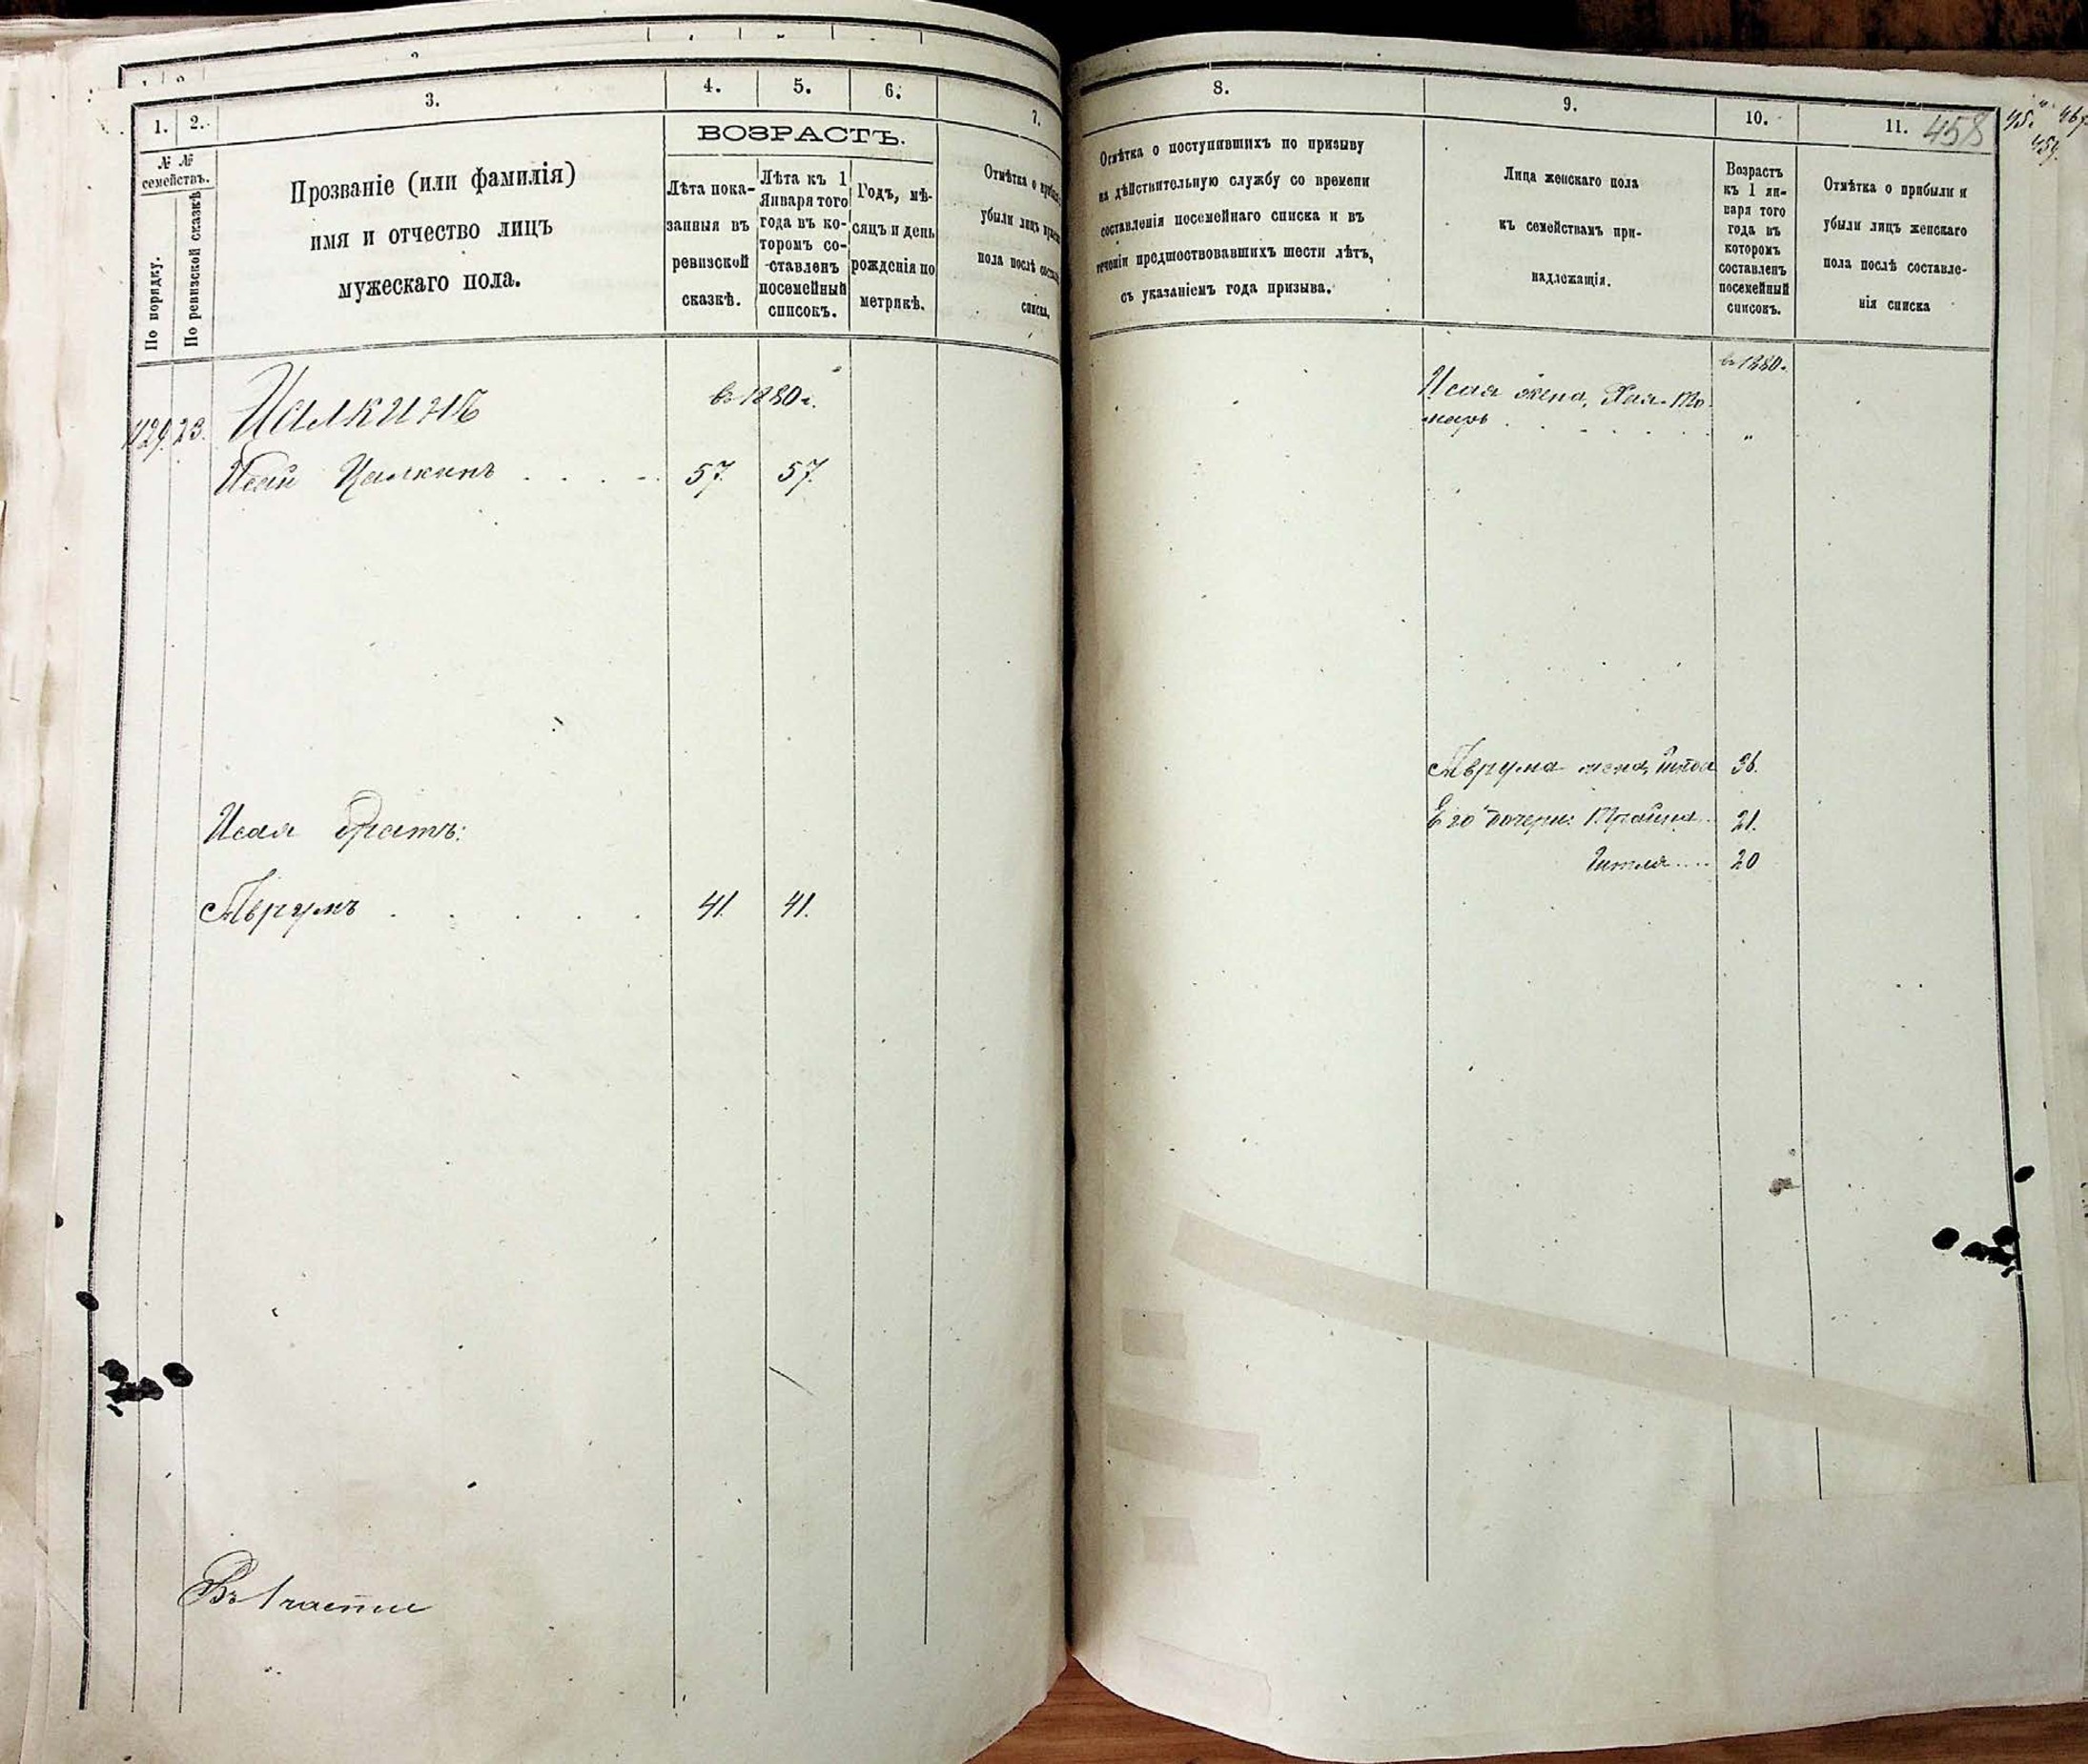 3.
4.
5.
6.
7.
1.
2.
№ №
семействъ.
По порядку.
По ревизской сказкѣ
Прозваніе (или фамилія)
имя и отчество лицъ
мужескаго пола.
ВОЗРАСТЪ.
Лѣта пока-
занныя въ
ревизской
сказкѣ.
Лѣта къ 1
Января того
года въ ко-
торомъ со-
ставленъ
посемейный
списокъ.
Годъ, мѣ-
сяцъ и день
рожденія по
метрикѣ.
Отмѣтка о
убыли лицъ
пола послѣ
списка.
429. 23. Цалкинъ
въ 1880 г.
Исай Цалкинъ 57. 57.
Исая братъ:
Аврумъ 41. 41.
Въ 1 участке
8.
9.
10.
11.
458
45.
459.
Отмѣтка о поступившихъ по призыву
на дѣйствительную службу со времени
составленія посемейнаго списка и въ
теченіи предшествовавшихъ шести лѣтъ,
съ указаніемъ года призыва.
Лица женскаго пола
къ семействамъ при-
надлежащія.
Возрастъ
къ 1 ян-
варя того
года въ
которомъ
составленъ
посемейный
списокъ.
Отмѣтка о прибыли и
убыли лицъ женскаго
пола послѣ составле-
нія списка
въ 1880 г.
Исая жена, Хая-То
маръ "
Аврума жена, 36.
Его дочери: Трайна 21.
Гитля 20